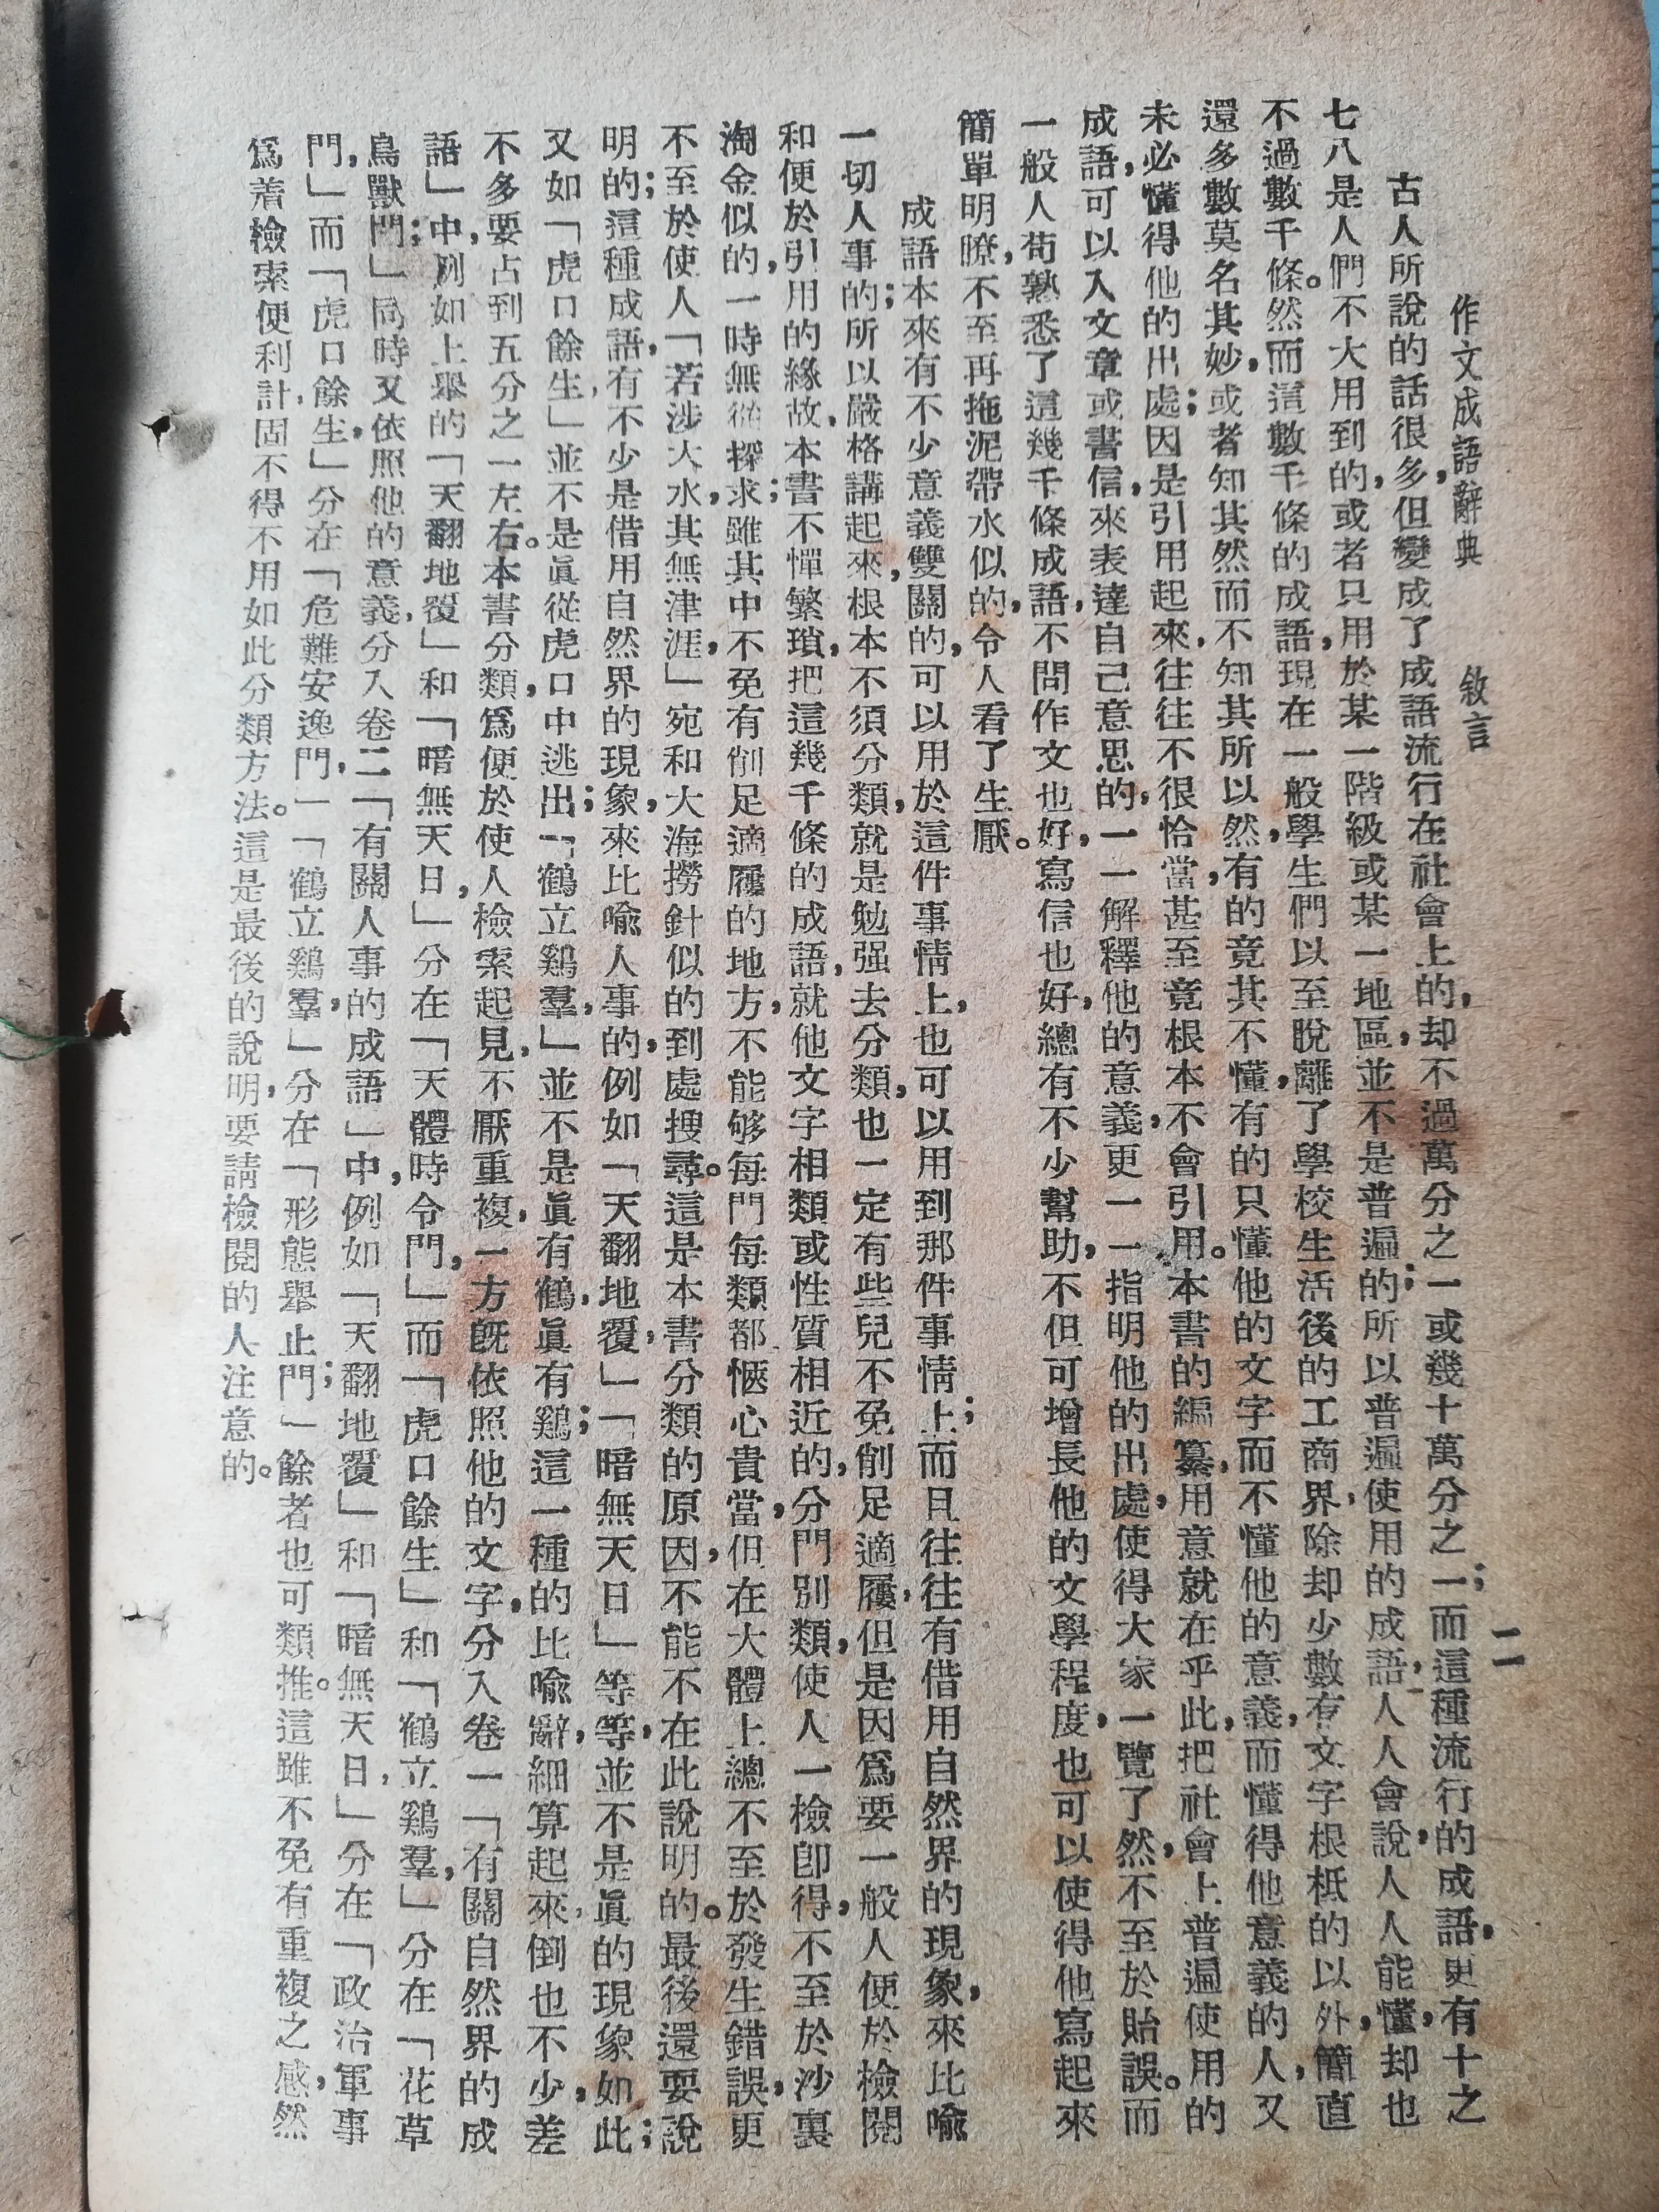 作文成語辭典　敘言　二
古人所說的話很多，但變成了成語流行在社會上的，却不過萬分之一或幾十萬分之一；而這種流行的成語，更有十之
七八是人們不大用到的，或者只用於某一階級或某一地區，並不是普遍的；所以普遍使用的成語，人人會說，人人能懂，却也
不過數千條。然而這數千條的成語，現在一般學生們以至脫離了學校生活後的工商界，除却少數有文字根柢的以外，簡直
還多數莫名其妙，或者知其然而不知其所以然，有的竟其不懂，有的只懂他的文字而不懂他的意義，而懂得他意義的人，又
未必懂得他的出處；因是引用起來，往往不很恰當，甚至竟根本不會引用。本書的編纂，用意就在乎此，把社會上普遍使用的
成語，可以入文章或書信，來表達自己意思的，一一解釋他的意義，更一一指明他的出處，使得大家一覽了然，不至於貽誤。而
一般人荀熟悉了這幾千條成語，不問作文也好，寫信也好，總有不少幫助，不但可增長他的文學程度，也可以使得他寫起來
簡單明瞭，不至再拖泥帶水似的，令人看了生厭。
成語本來有不少意義雙關的，可以用於這件事情上，也可以用到那件事情上；而且往往有借用自然界的現象，來比喻
一切人事的；所以嚴格講起來，根本不須分類，就是勉强去分類，也一定有些兒不免削足適履，但是因爲要一般人便於檢閱
和便於引用的緣故，本書不憚繁瑣，把這幾千條的成語，就他文字相類或性質相近的，分門別類，使人一檢卽得，不至於沙裏
淘金似的，一時無從探求；雖其中不免有削足適履的地方，不能够每門每類都愜心貴當，但在大體上總不至於發生錯誤，更
不至於使人「若涉大水，其無津涯，」宛和大海撈針似的到處搜尋。這是本書分類的原因，不能不在此說明的。最後還要說
明的；這種成語，有不少是借用自然界的現象，來比喻人事的，例如「天翻地覆，」「暗無天日」等等，並不是眞的現象如此；
又如「虎口餘生，」並不是眞從虎口中逃出；「鶴立鷄羣，」並不是眞有鶴，眞有鷄；這一種的比喻辭，細算起來，倒也不少，差
不多要占到五分之一左右。本書分類，爲便於使人檢索起見，不厭重複，一方旣依照他的文字，分入卷一「有關自然界的成
語」中，例如上舉的「天翻地覆」和「暗無天日，」分在「天體時令門，」而「虎口餘生」和「鶴立鷄羣，」分在「花草
鳥獸門；」同時又依照他的意義，分入卷二「有關人事的成語」中，例如「天翻地覆」和「暗無天日，」分在「政治軍事
門，」而「虎口餘生，」分在「危難安逸門，」「鶴立鷄羣，」分在「形態舉止門；」餘者也可類推。這雖不免有重複之感，然
爲着檢索便利計，固不得不用如此分類方法。這是最後的說明，要請檢閱的人注意的。